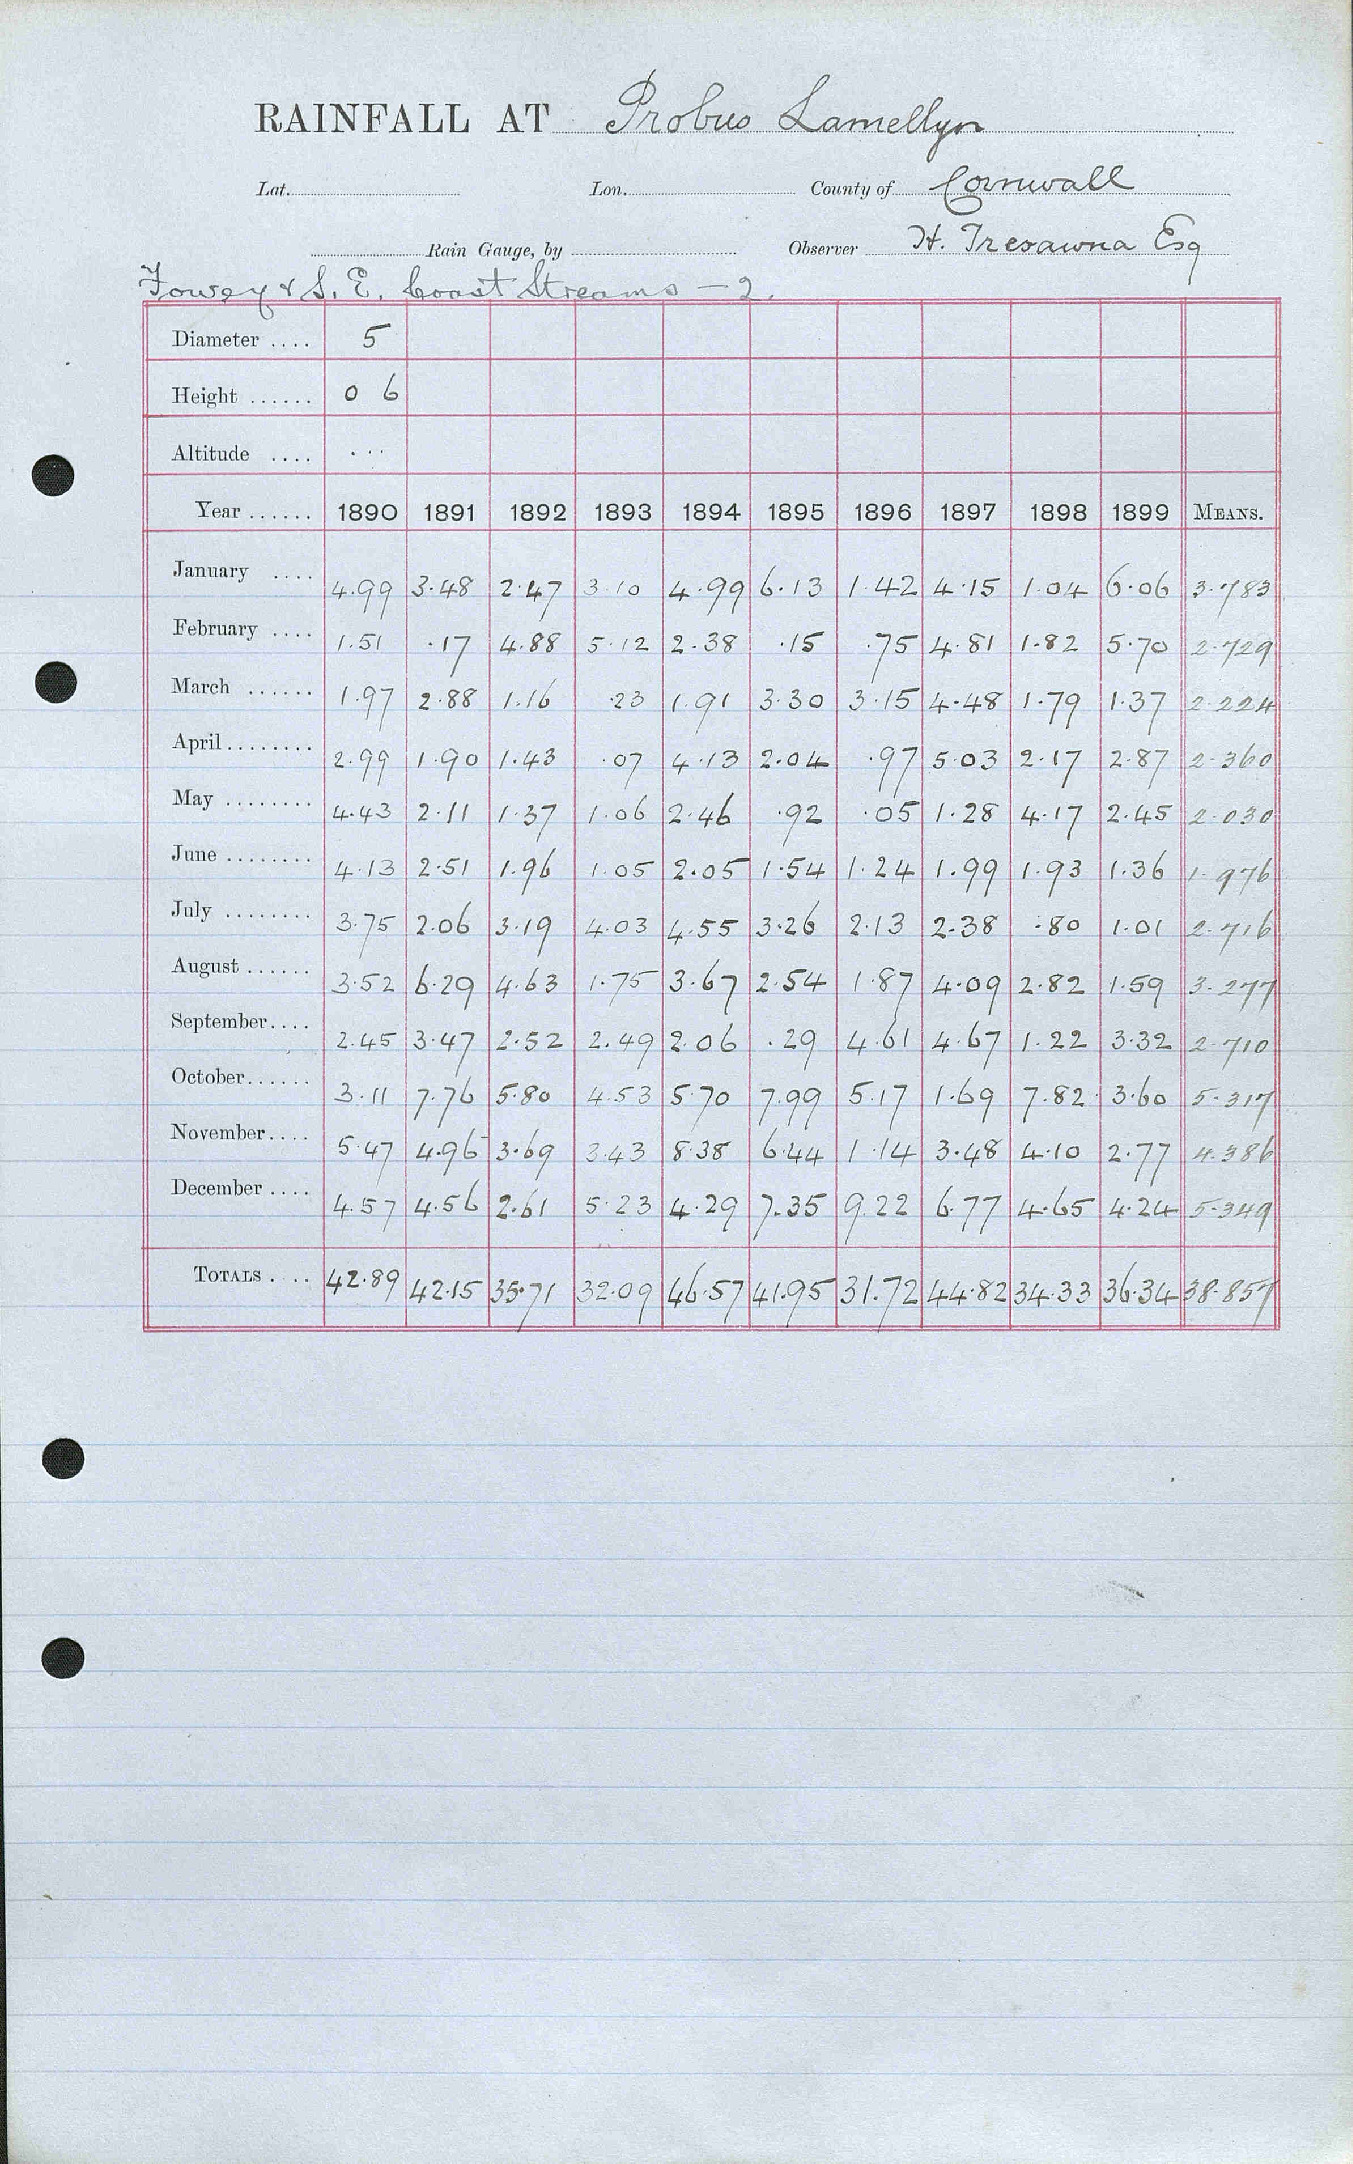 RAINFALL AT Probus Lamellyn
Lat. Lon. County of Cornwall
Rain Gauge, by Observer H. Tresawna Esq
Fowey & S. E. Coast Streams — 2.
Diameter .... 5
Height ...... 0 6
Altitude .... ...
Year ...... 1890 1891 1892 1893 1894 1895 1896 1897 1898 1899 MEANS.
January .... 4.99 3.48 2.47 3.10 4.99 6.13 1.42 4.15 1.04 6.06 3.783
February .... 1.51 .17 4.88 5.12 2.38 .15 .75 4.81 1.82 5.70 2.729
March ...... 1.97 2.88 1.16 .23 1.91 3.30 3.15 4.48 1.79 1.37 2.224
April ........ 2.99 1.90 1.43 .07 4.13 2.04 .97 5.03 2.17 2.87 2.360
May ........ 4.43 2.11 1.37 1.06 2.46 .92 .05 1.28 4.17 2.45 2.030
June ........ 4.13 2.51 1.96 1.05 2.05 1.54 1.24 1.99 1.93 1.36 1.976
July ........ 3.75 2.06 3.19 4.03 4.55 3.26 2.13 2.38 .80 1.01 2.716
August ...... 3.52 6.29 4.63 1.75 3.67 2.54 1.87 4.09 2.82 1.59 3.277
September .... 2.45 3.47 2.52 2.49 2.06 .29 4.61 4.67 1.22 3.32 2.710
October ...... 3.11 7.76 5.80 4.53 5.70 7.99 5.17 1.69 7.82 3.60 5.317
November .... 5.47 4.96 3.69 3.43 8.38 6.44 1.14 3.48 4.10 2.77 4.386
December .... 4.57 4.56 2.61 5.23 4.29 7.35 9.22 6.77 4.65 4.24 5.349
TOTALS .... 42.89 42.15 35.71 32.09 46.57 41.95 31.72 44.82 34.33 36.34 38.857